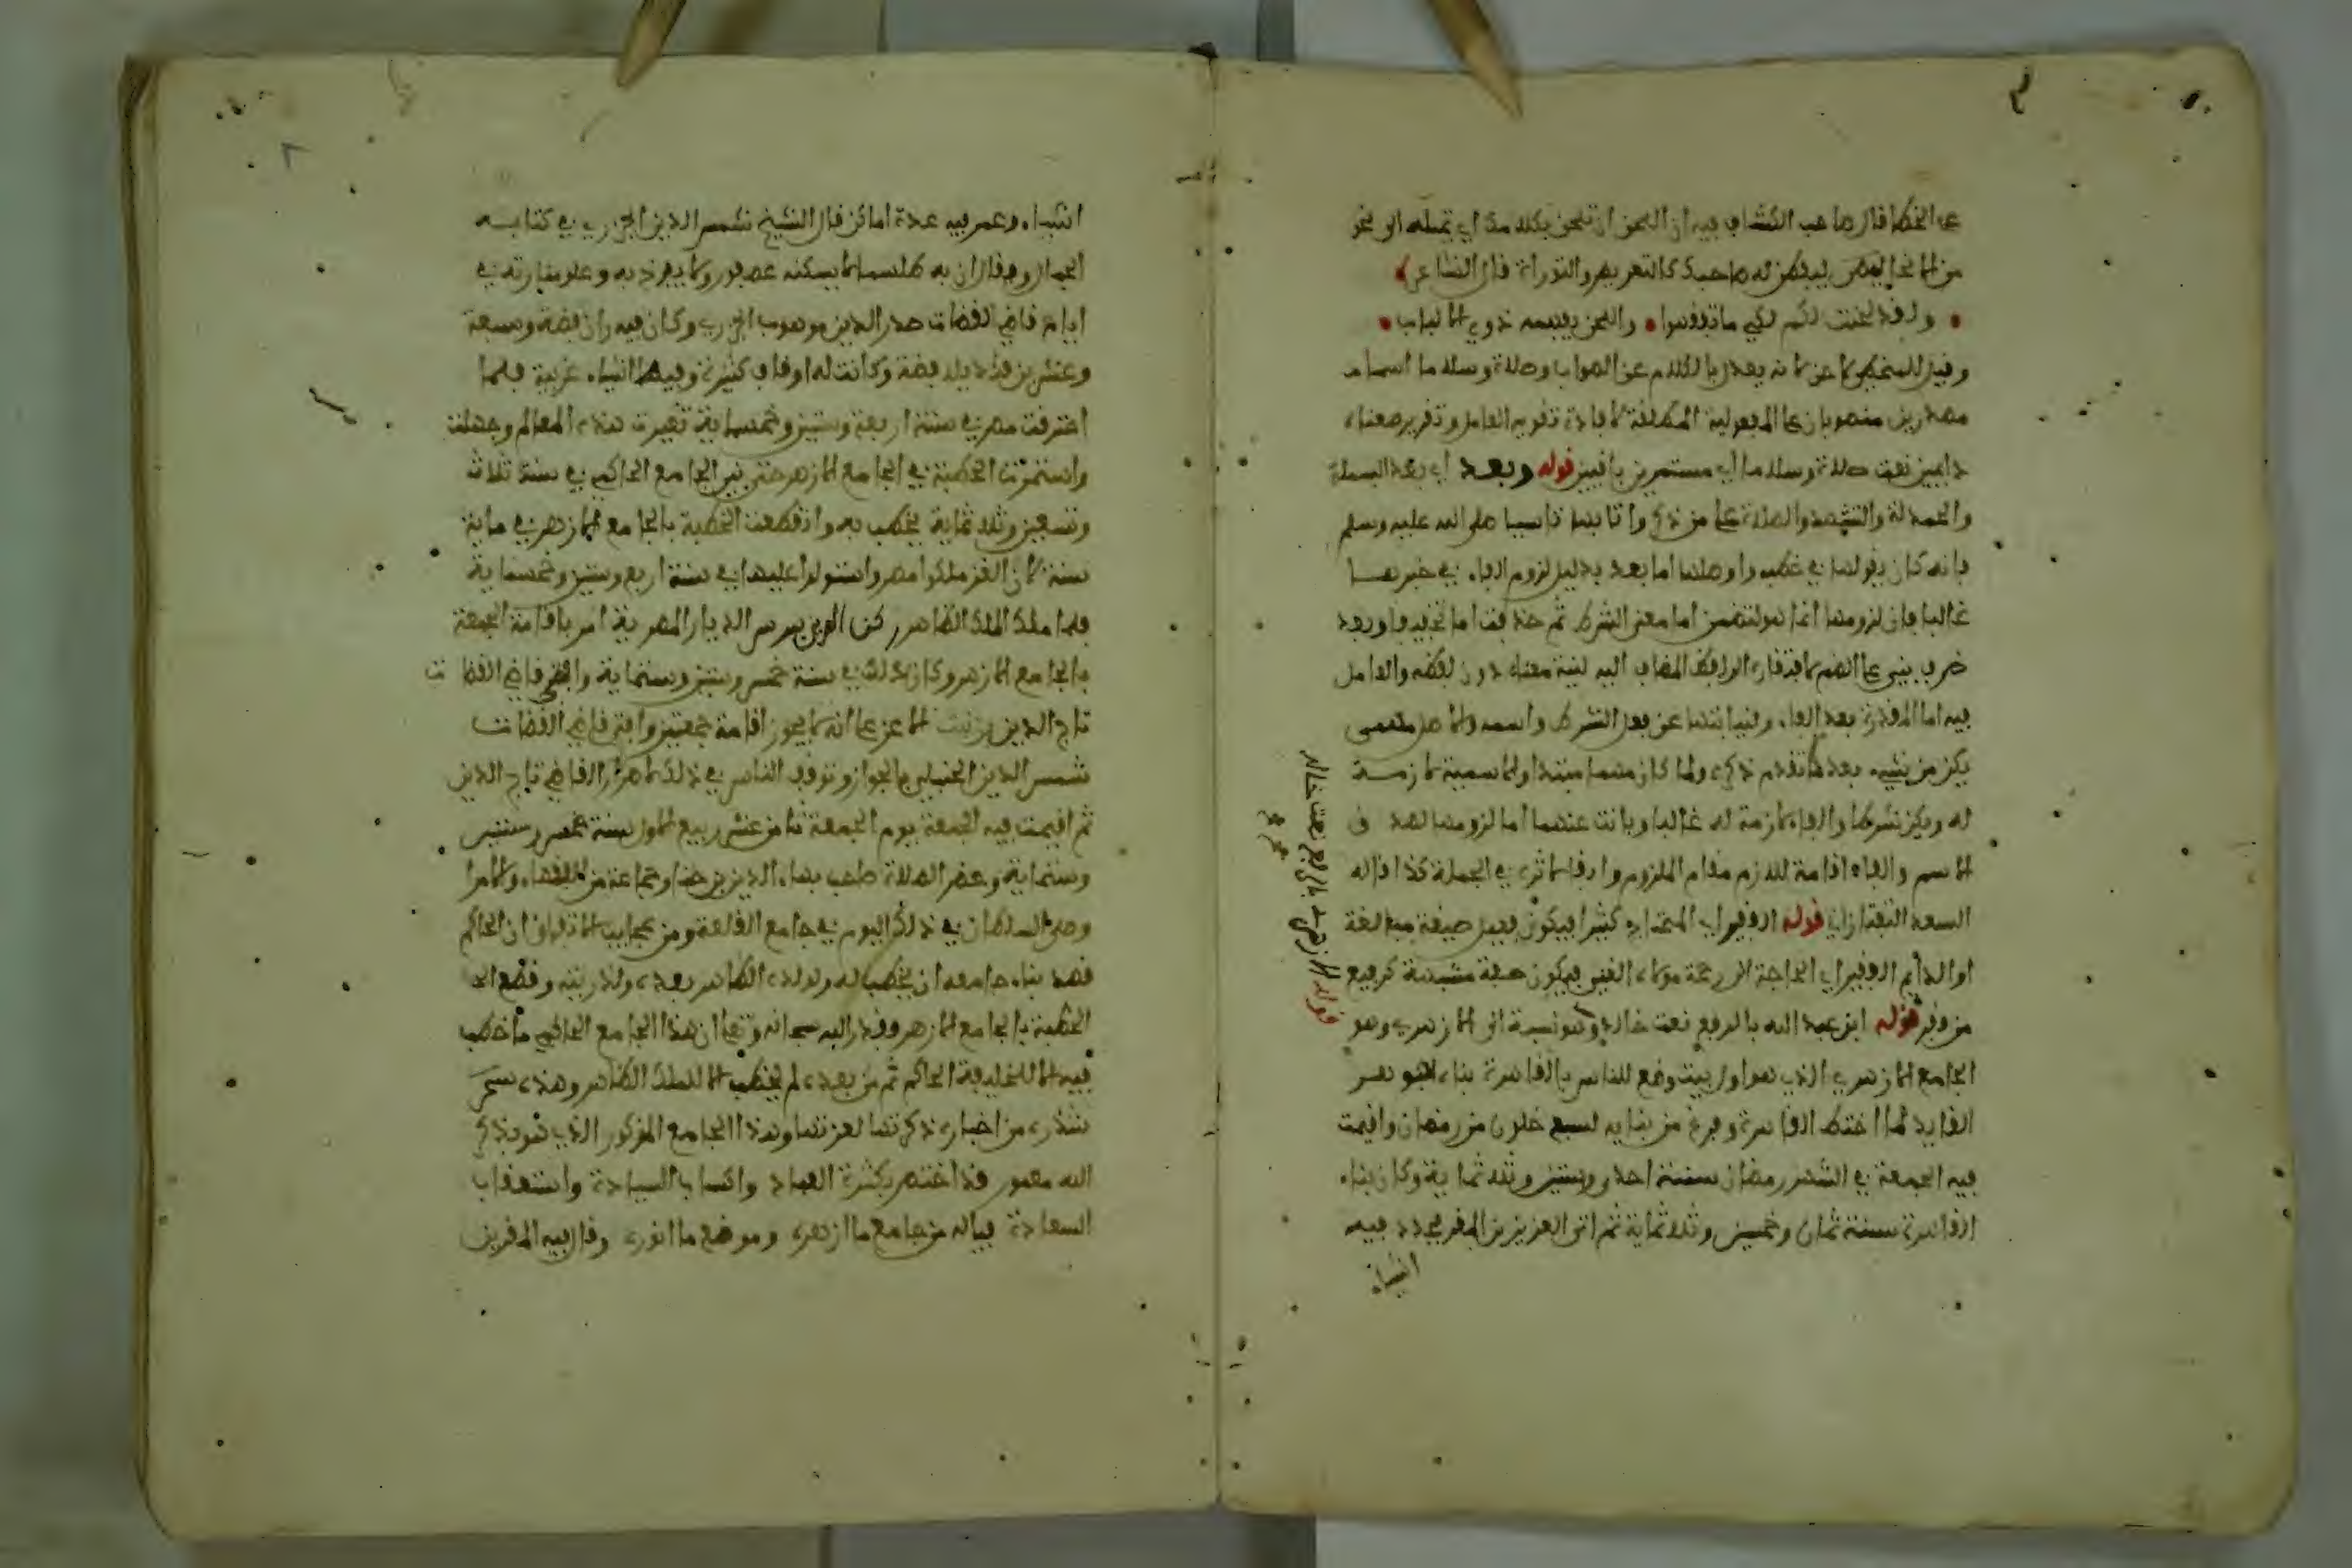 على الخطا قال صاحب الكشاف فيه ان اللحن ان تلحن بكلامك اي تميله الى نحو
من الانحا ليفطن له صاحبك كالتعريض والتورية قال الشاعر
ولقد لحنت لكم لكي ما تفقهوا واللحن يفهمه ذوي الالباب
وقيل للمخطي لاحن لانه يعدل بالكلام عن الصواب وصلاة وسلاما اسما
مصدرين منصوبان على المفعولية المطلقة لافادة تقوية العامل وتقرير معناه
دايمين نعت صلاة وسلاما اي مستمرين باقيين قوله وبعد اي بعد البسملة
والحمدلة والتشهد والصلاة على من ذكر واتا بها تاسيا صلى الله عليه وسلم
فانه كان يقولها في خطبه واصلها اما بعد بدليل لزوم الفاء في خبرها
غالبا فان لزومها انما هو لتضمن اما معنى الشرط ثم حذفت اما تخفيفا وبعد
ظرف بني على الضم لافتقاره الى لفظ المضاف اليه لنية معناه دون لفظه والعامل
فيه اما المقدرة بعد الفاء ولنيابتها عن فعل الشرط واسمه والاصل مهمى
يكن من شيء بعد ما تقدم ذكره ولما كان مهما مبتدا والاسمية لازمة
له ويكن شرطا والفاء لازمة له غالبا وبانت عنهما اما لزومها لصوق
الاسم والفاء اقامة للازم مقام الملزوم وابقا لاثره في الجملة كذا قاله
السعد التفتازاني قوله الفقير اي المحتاج كثيرا فيكون فعيل صيغة مبالغة
او الدايم الفقير اي الحاجة الى رحمة مولاه الغني فيكون صفة مشبهة كرفيع
من وفر قوله ابن عبد الله بالرفع نعت خالد وهو نسبة الى الازهري وهو
الجامع الازهري الذي هو اول بيت وضع للناس بالقاهرة بناه جوهر
القايد لما اختط القاهرة وفرغ من بنايه لسبع خلون من رمضان واقيمت
فيه الجمعة في الشهر رمضان سنة احد وستين وثلاثماية وكان بناء
القاهرة سنة ثمان وخمسين وثلاثماية ثم ان العزيز بن المعز جدد فيه
اشياء
قوله الازهري بالرفع نعت خالد
اشياء وعمر فيه عدة اماكن قال الشيخ شمس الدين الجزري في كتابه
الجمان وقال ان به طلسما لا يسكنه عصفور ولا يفرخ به وعلو منارته في
ايام قاضي القضات صدر الدين موهوب الجزري وكان فيه وزن فضة وسبعة
وعشرين قنديلا فضة وكانت له اوقاف كثيرة وفيها اشياء غريبة فلما
احترقت مصر في سنة اربعة وستين وخمسماية تغيرت هذه المعالم وجهلت
واستمرت الخطبة في الجامع الازهر حتى بني الجامع الحاكمي في سنة ثلاث
وتسعين وثلاثماية فخطب به وانقطعت الخطبة بالجامع الازهر في ماية
سنة لان الغز ملكوا مصر واستولوا عليها في سنة اربع وستين وخمسماية
فلما ملك الملك الظاهر ركن الدين بيبرس الديار المصرية امر باقامة الجمعة
بالجامع الازهر وكان ذلك في سنة خمس وستين وستماية وافتى قاضي القضات
تاج الدين بن بنت الاعز على انه لا يجوز اقامة جمعتين وافتى قاضي القضات
شمس الدين الحنبلي بالجواز وتوقف الناس في ذلك لاصرار القاضي تاج الدين
ثم اقيمت فيه الجمعة يوم الجمعة ثامن عشر ربيع الاول سنة خمس وستين
وستماية وحضر الصلاة صاحب بهاء الدين بن حنا وجماعة من الفقهاء والامرا
وصلى السلطان في ذلك اليوم في جامع القلعة ومن عجايب الاتفاق ان الحاكم
قصد بناء جامعه ان يخطب له ولولده الظاهر بعده ولذريته وقطع ال
الخطبة بالجامع الازهر وقدر الله سبحانه وتعالى ان هذا الجامع الحاكمي ما خطب
فيه الا للخليفة الحاكم ثم من بعده لم يخطب الا للملك الظاهر وهذه
شذره من اخباره ذكرتها لعزتها وهذا الجامع المذكور الذي هو بذكر
الله معمور قد اختص بكثرة العباد واكتساب السيادة واستعقاب
السعادة فياله من جامع ما ازهره وموضع ما انوره وقال فيه المقريزي